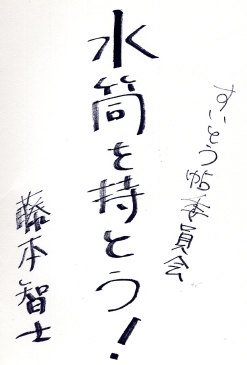 すいとう帖委員会
水筒を持とう!
藤本智士